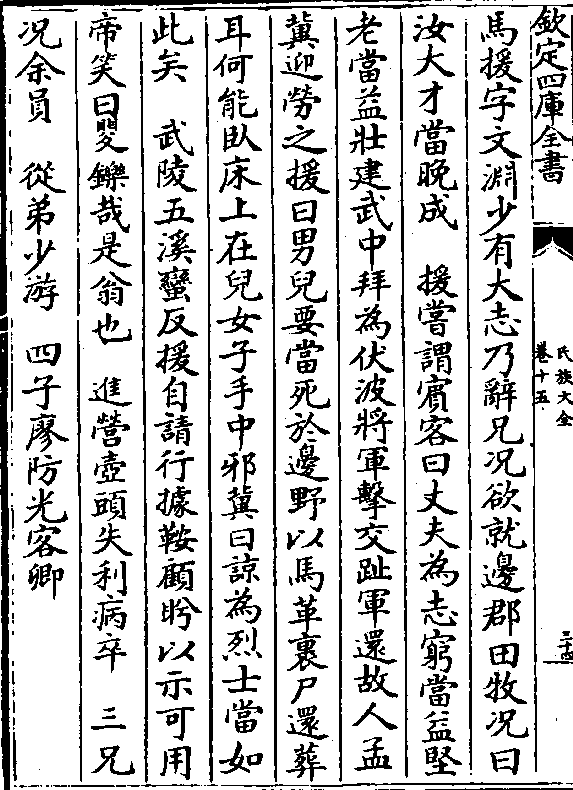 欽定四庫全書
氏族大全
卷十五
三十四
馬援字文淵少有大志乃辭兄況欲就邊郡田牧況曰
汝大才當晚成　援嘗謂賓客曰丈夫為志窮當益堅
老當益壯建武中拜為伏波將軍擊交趾軍還故人孟
冀迎勞之援曰男兒要當死於邊野以馬革裹尸還葬
耳何能臥床上在兒女子手中邪冀曰諒為烈士當如
此矣　武陵五溪蠻反援自請行據鞍顧眄以示可用
帝笑曰矍鑠哉是翁也　進營壺頭失利病卒　三兄
況余員　從弟少游　四子廖防光客卿